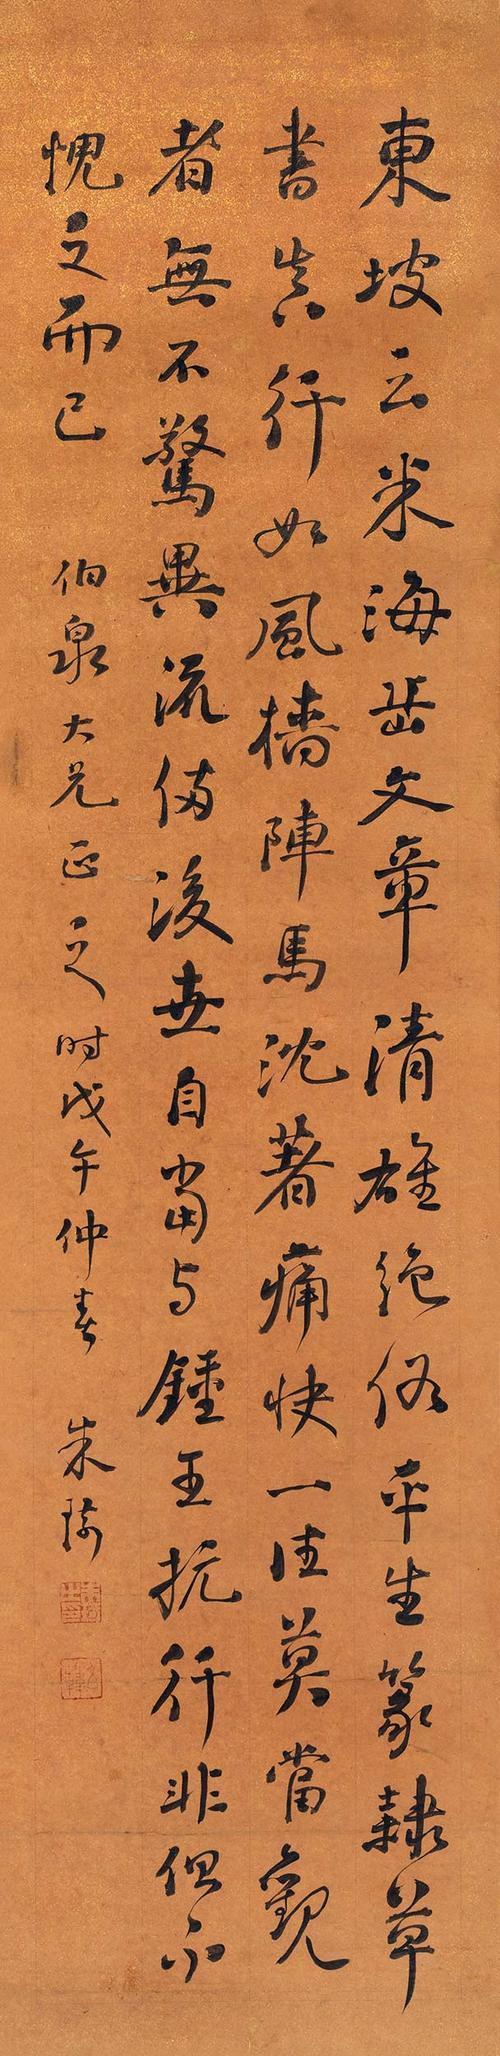 東坡云米海岳文章清雄絶俗平生篆隸草
書真行如風檣陣馬沈著痛快一往莫當觀
者無不驚異流傳後世自當与鍾王抗行非但不
愧之而已 伯泉大兄正之時戊午仲春 朱琦